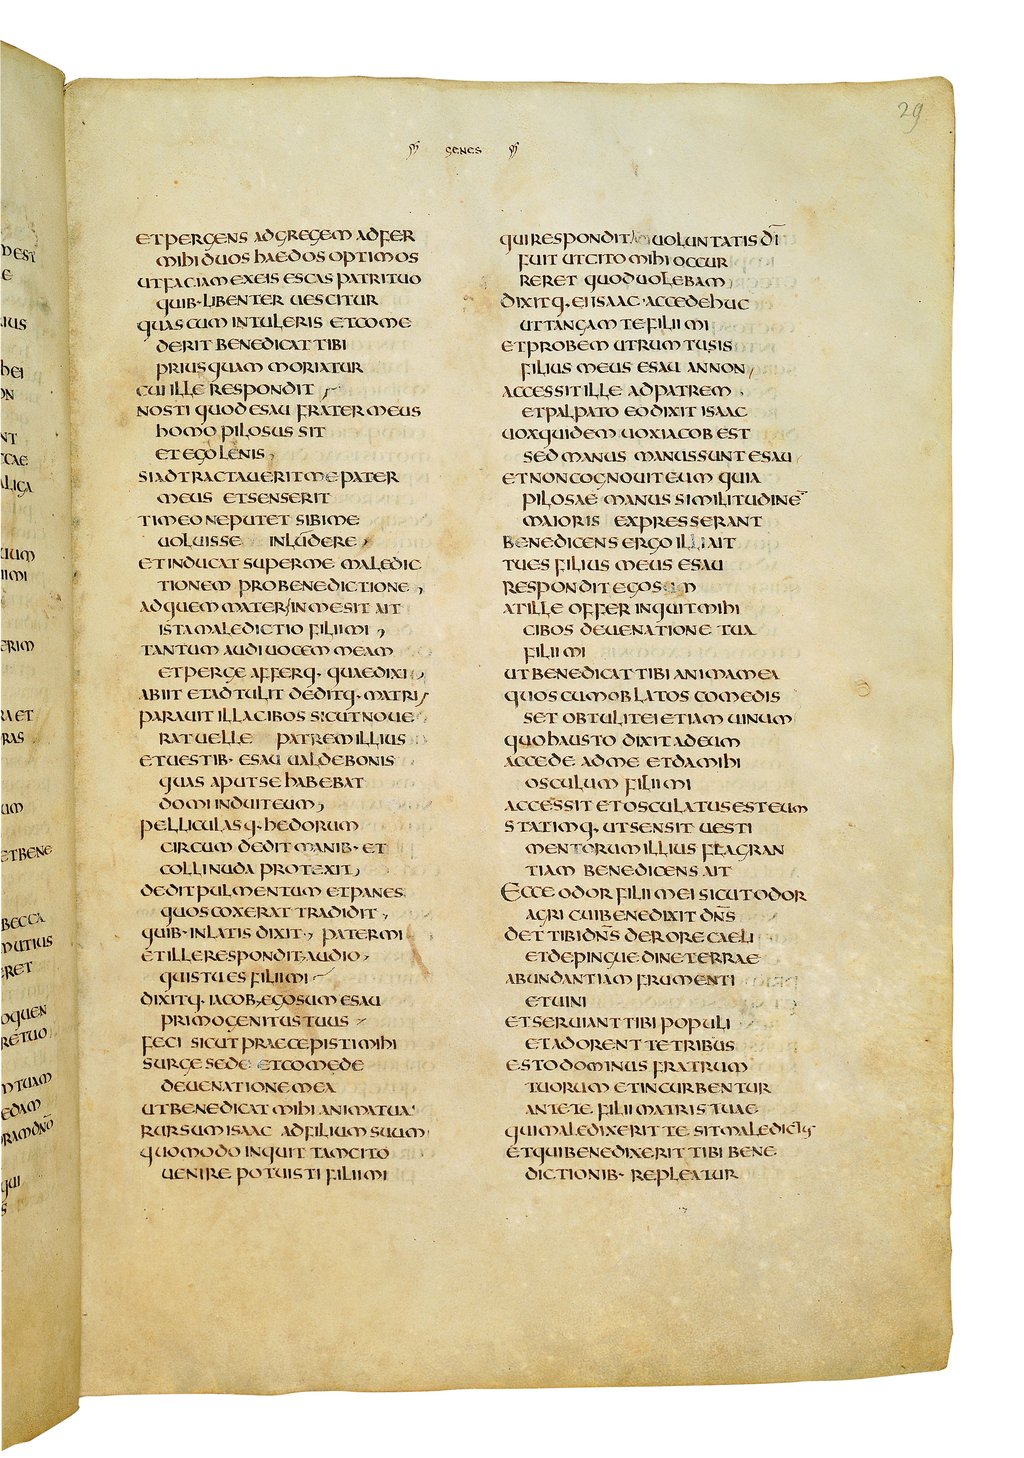 29
GENES
ET PERGENS AD GREGEM ADFER
MIHI DUOS HAEDOS OPTIMOS
UT FACIAM EX EIS ESCAS PATRI TUO
QUIB· LIBENTER UESCITUR
QUAS CUM INTULERIS ET COME
DERIT BENEDICAT TIBI
PRIUS QUAM MORIATUR
CUI ILLE RESPONDIT
NOSTI QUOD ESAU FRATER MEUS
HOMO PILOSUS SIT
ET EGO LENIS
SI ADTRACTAUERIT ME PATER
MEUS ET SENSERIT
TIMEO NE PUTET SIBI ME
UOLUISSE INLUDERE
ET INDUCAT SUPER ME MALEDIC
TIONEM PRO BENEDICTIONE
AD QUEM MATER IN ME SIT AIT
ISTA MALEDICTIO FILI MI
TANTUM AUDI UOCEM MEAM
ET PERGE AFFERQ· QUAE DIXI
ABIIT ET ADTULIT DEDITQ· MATRI
PARAUIT ILLA CIBOS SICUT NOUE
RAT UELLE PATREM ILLIUS
ET UESTIB· ESAU UALDE BONIS
QUAS APUT SE HABEBAT
DOMI INDUIT EUM
PELLICULASQ· HEDORUM
CIRCUM DEDIT MANIB· ET
COLLI NUDA PROTEXIT
DEDIT PULMENTUM ET PANES
QUOS COXERAT TRADIDIT
QUIB· INLATIS DIXIT PATER MI
ET ILLE RESPONDIT AUDIO
QUIS TU ES FILI MI
DIXITQ· IACOB EGO SUM ESAU
PRIMOGENITUS TUUS
FECI SICUT PRAECEPISTI MIHI
SURGE SEDE ET COMEDE
DE UENATIONE MEA
UT BENEDICAT MIHI ANIMA TUA
RURSUM ISAAC AD FILIUM SUUM
QUOMODO INQUIT TAM CITO
UENIRE POTUISTI FILI MI
QUI RESPONDIT UOLUNTATIS DI̅
FUIT UT CITO MIHI OCCUR
RERET QUOD UOLEBAM
DIXITQ· EI ISAAC · ACCEDE HUC
UT TANGAM TE FILI MI
ET PROBEM UTRUM TU SIS
FILIUS MEUS ESAU AN NON
ACCESSIT ILLE AD PATREM
ET PALPATO EO DIXIT ISAAC
UOX QUIDEM UOX IACOB EST
SED MANUS MANUS SUNT ESAU
ET NON COGNOUIT EUM QUIA
PILOSAE MANUS SIMILITUDINE̅
MAIORIS EXPRESSERANT
BENEDICENS ERGO ILLI AIT
TU ES FILIUS MEUS ESAU
RESPONDIT EGO SUM
AT ILLE OFFER INQUIT MIHI
CIBOS DE UENATIONE TUA
FILI MI
UT BENEDICAT TIBI ANIMA MEA
QUOS CUM OBLATOS COMEDIS
SET OBTULIT EI ETIAM UINUM
QUO HAUSTO DIXIT AD EUM
ACCEDE AD ME ET DA MIHI
OSCULUM FILI MI
ACCESSIT ET OSCULATUS EST EUM
STATIMQ· UT SENSIT UESTI
MENTORUM ILLIUS FLAGRAN
TIAM BENEDICENS AIT
ECCE ODOR FILII MEI SICUT ODOR
AGRI CUI BENEDIXIT DN̅S
DET TIBI DN̅S DE RORE CAELI
ET DE PINGUEDINE TERRAE
ABUNDANTIAM FRUMENTI
ET UINI
ET SERUIANT TIBI POPULI
ET ADORENT TE TRIBUS
ESTO DOMINUS FRATRUM
TUORUM ET INCURBENTUR
ANTE TE FILII MATRIS TUAE
QUI MALEDIXERIT TE SIT MALEDICTUS
ET QUI BENEDIXERIT TIBI BENE
DICTIONIB· REPLEATUR